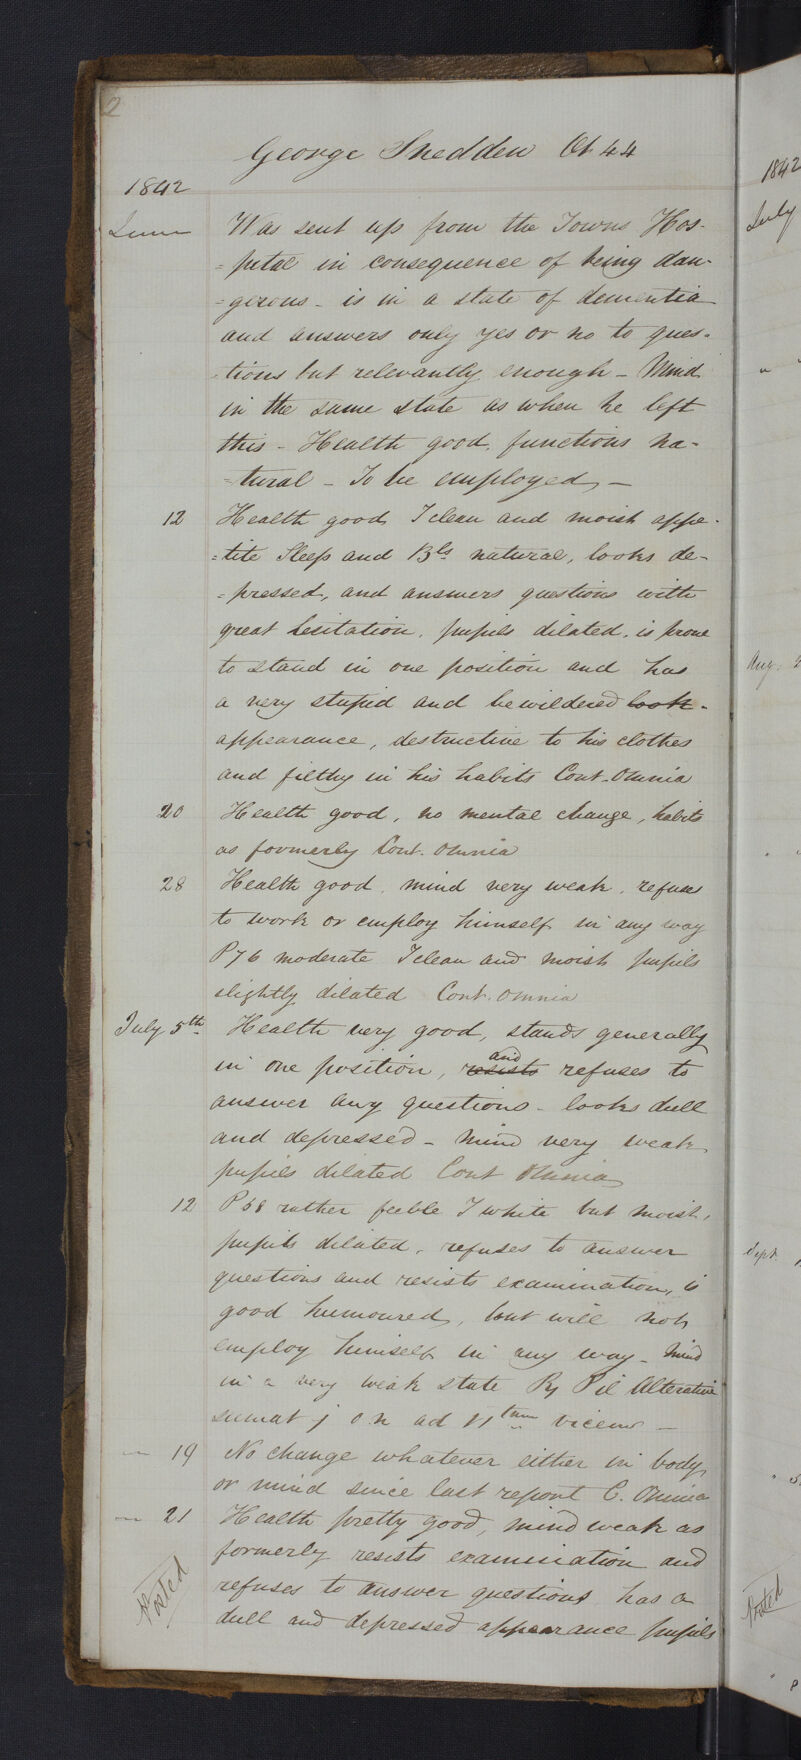 2
George Snedden Æt 44
1842
June Was sent up from the Towns Hos-
=pital in consequence of being dan-
=gerous - is in a state of dementia
and answers only yes or no to ques-
-tions but relevantly enough - Mind
in the same state as when he left
this - Health good, functions na-
-tural - To be employed, -
12 Health good, T clean and moist appe-
=tite Sleep and Bls natural, looks de-
=pressed, and answers questions with
great hesitation, pupils dilated, is prone
to stand in one position and has
a very stupid and bewildered look -
appearance, destructive to his clothes
and filthy in his habits Cont. Omnia
20 Health good, no mental change, habits
as formerly Cont. Omnia
28 Health good, mind very weak, refuses
to work or employ himself in any way
P 76 moderate T clean and moist pupils
slightly dilated Cont. Omnia
July 5th Health very good, stands generally
and
in one position, resists refuses to
answer any questions - looks dull
and depressed - Mind very weak,
pupils dilated Cont Omnia
12 P 68 rather feeble T white but moist,
pupils dilated, refuses to answer
questions and resists examination, is
good humoured, but will not
employ himself in any way - Mind
in a very weak state Rx Pil Alterative
sumat j o.n ad vicem -
19 No change whatever either in body,
or mind since last report C. Omnia
21 Health pretty good, mind weak as
formerly resists examination and
refuses to answer questions has a
dull and depressed appearance pupils
Posted
1842
July
Aug.
Sept.
Posted